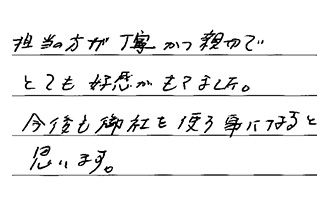 担当の方が丁寧かつ親切で
とても好感がもてました。
今後も御社を使う事になると
思います。